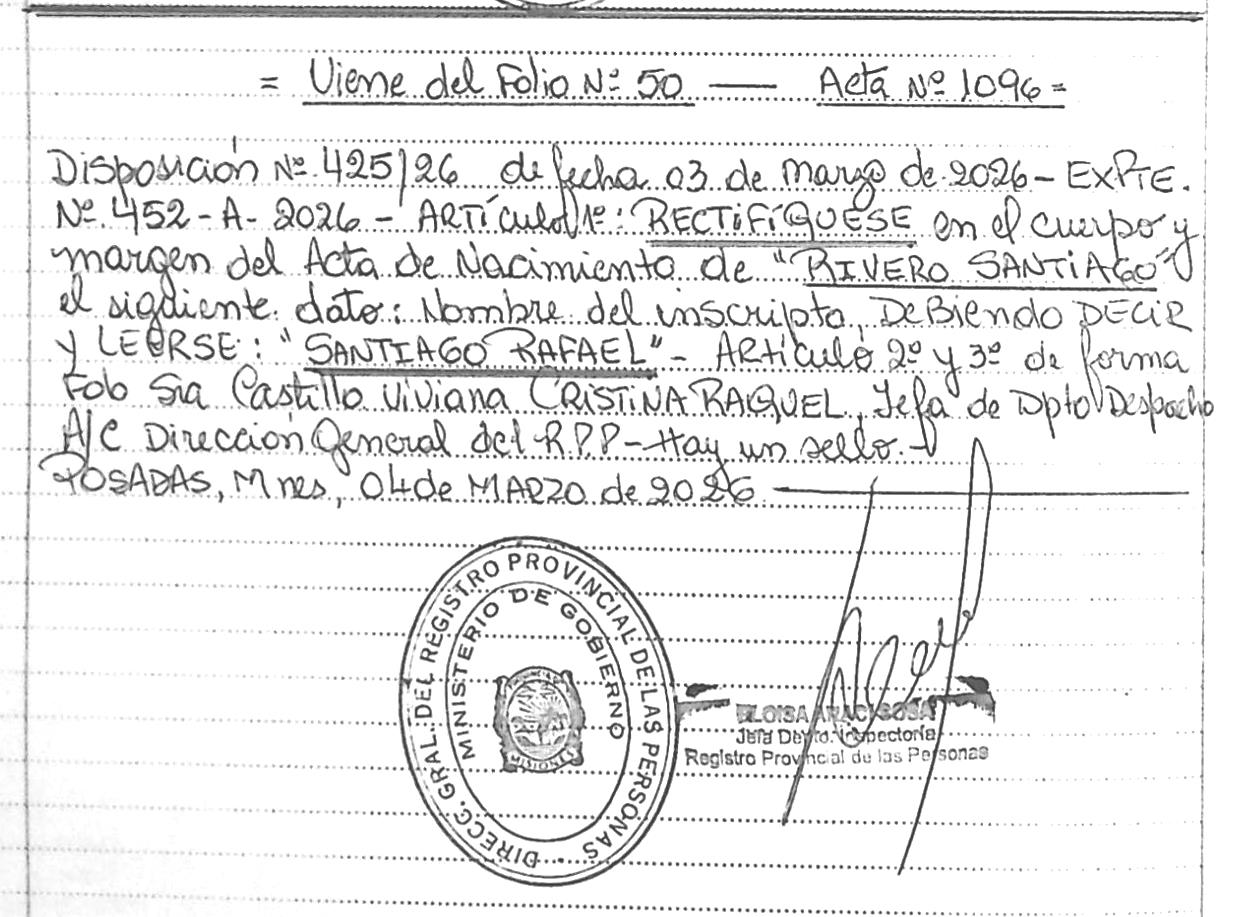 = Viene del Folio Nº 50 — Acta Nº 1096 =
Disposición Nº 425/26 de fecha 03 de Marzo de 2026 - EXPTE.
Nº 452 - A - 2026 - ARTículo 1º: RECTIFÍQUESE en el cuerpo y
margen del Acta de Nacimiento de "RIVERO SANTIAGO"
el siguiente dato: Nombre del inscripto, DEBiendo DECIR
y LEERSE: "SANTIAGO RAFAEL" - ARtículo 2º y 3º de forma
Fdo Sra Castillo Viviana CRISTINA RAQUEL, Jefa de Dpto Despacho
A/C Dirección General del R.P.P - Hay un sello. -
POSADAS, Mnes, 04 de MARZO de 2026
DIRECC. GRAL. DEL REGISTRO PROVINCIAL DE LAS PERSONAS
MINISTERIO DE GOBIERNO
MISIONES
ELOISA ARACI SOSA
Jefa Depto. Inspectoría
Registro Provincial de las Personas